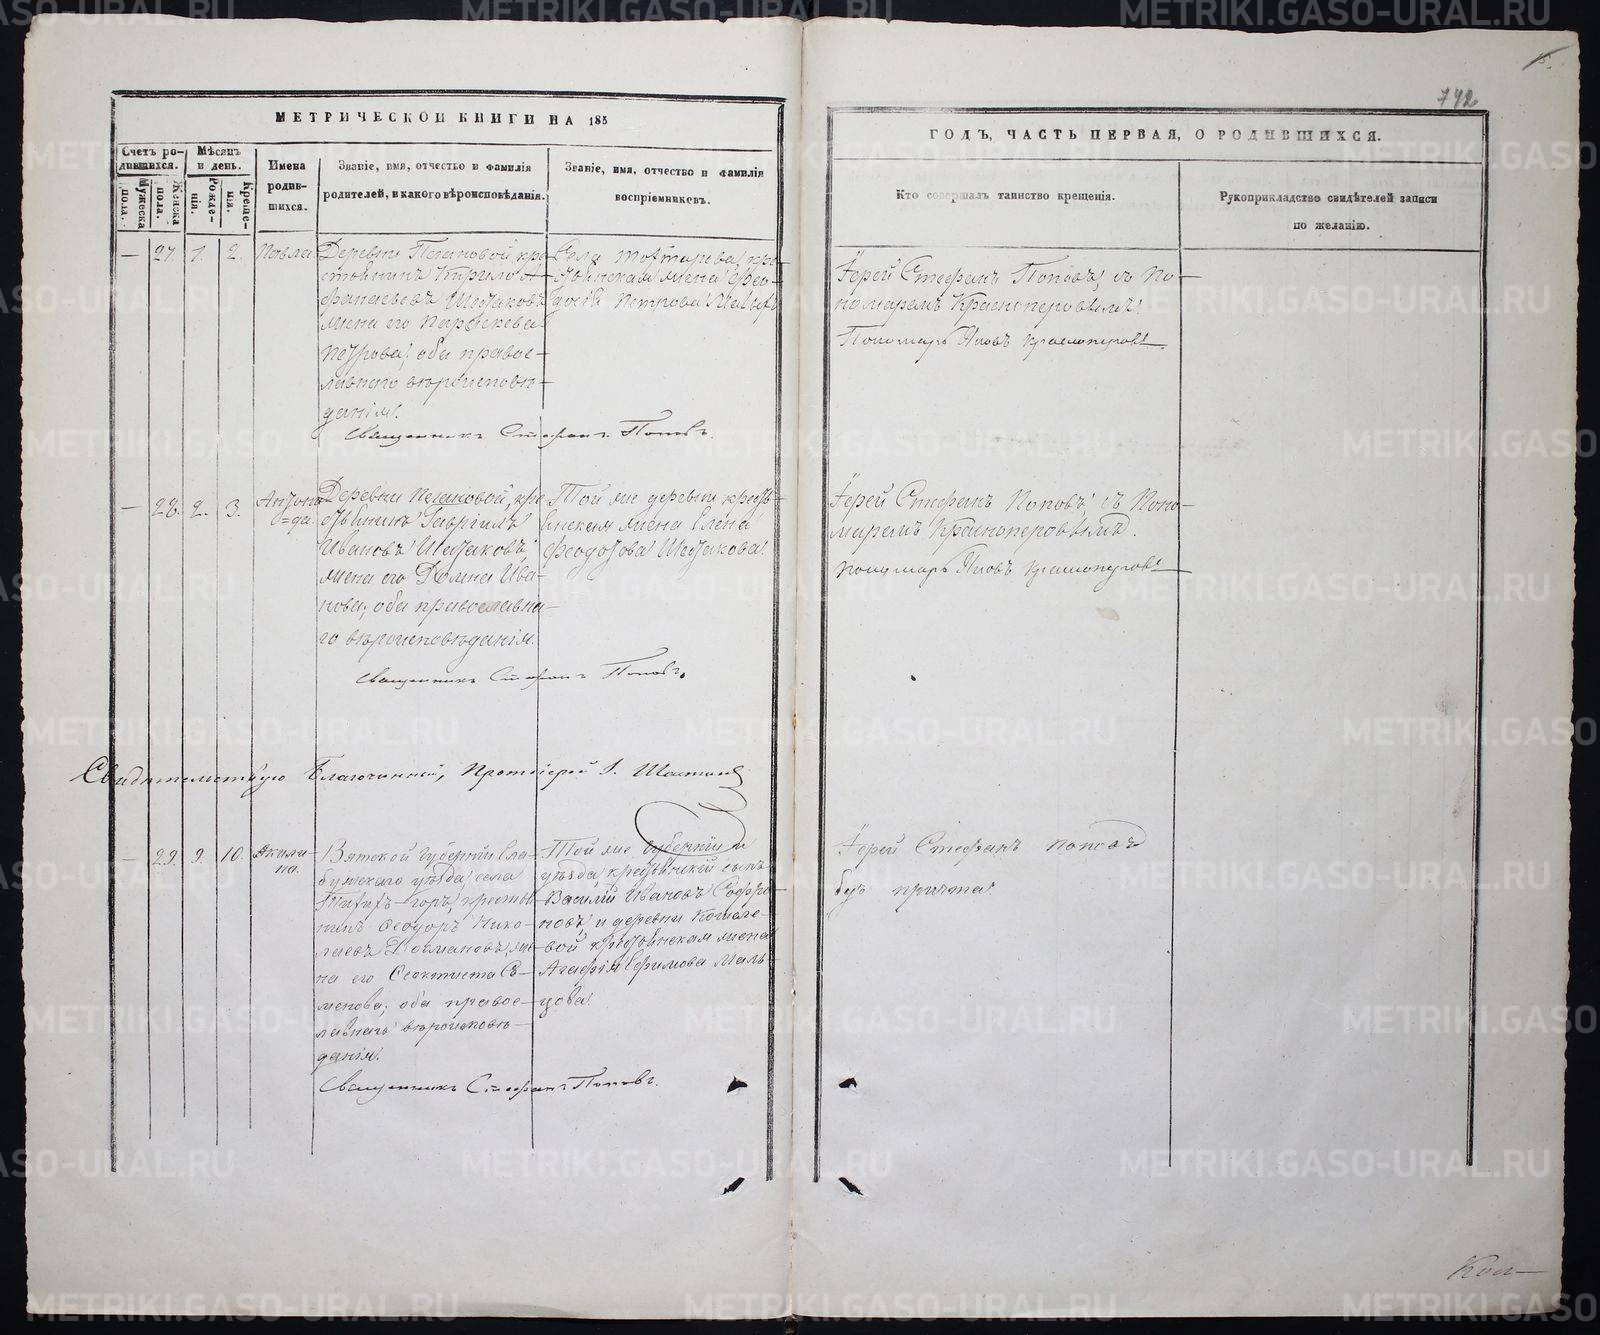 742
МЕТРИЧЕСКОЙ КНИГИ НА 185
ГОДЪ, ЧАСТЬ ПЕРВАЯ, О РОДИВШИХСЯ.
Счетъ ро-
дившихся.
Мужеска
пола.
Женска
пола.
Мѣсяцъ
и день.
Рожде-
нія.
Креще-
нія.
Имена
родив-
шихся.
Званіе, имя, отчество и фамилія
родителей, и какого вѣроисповѣданія.
Званіе, имя, отчество и фамилія
воспріемниковъ.
Кто совершалъ таинство крещенія.
Рукоприкладство свидѣтелей записи
по желанію.
— 27. 1. 2.
Павла
Деревни кре-
стьянинъ Кирило А-
фанасьевъ Шестаковъ
жена его Параскева
Петрова, оба правос-
лавнаго вѣроисповѣ-
данія.
Священникъ Стефанъ Поповъ.
Села кре-
стьянская жена Фео-
досія Петрова
Іерей Стефанъ Поповъ, съ По-
номаремъ Красноперовымъ.
Пономарь Іаковъ Красноперовъ
— 28. 2. 3.
Антони-
да.
Деревни кре-
стьянинъ Гавріилъ
Ивановъ Шестаковъ,
жена его Домна Ива-
нова, оба православна-
го вѣроисповѣданія.
Священникъ Стефанъ Поповъ.
Той же деревни кресть-
янская жена Елена
Феодотова Шестакова.
Іерей Стефанъ Поповъ, съ Поно-
маремъ Красноперовымъ.
Пономарь Іаковъ Красноперовъ
Свидѣтельствую Благочинный, Протоіерей І.
— 29. 9. 10.
Акили-
на.
Вятской губерніи Ела-
бужскаго уѣзда, села
горъ, кресть
нинъ Феодоръ Нико-
лаевъ же-
на его Феоктиста Се-
менова, оба правос-
лавнаго вѣроисповѣ-
данія.
Священникъ Стефанъ Поповъ.
Той же губерніи и
уѣзда, крестьянскій сынъ
Василій Ивановъ Софро
новъ, и деревни Кошеле-
вой крестьянская жена
Агафія Ефимова Маль-
цова.
Іерей Стефанъ Поповъ
безъ причта.
METRIKI.GASO-URAL.RU